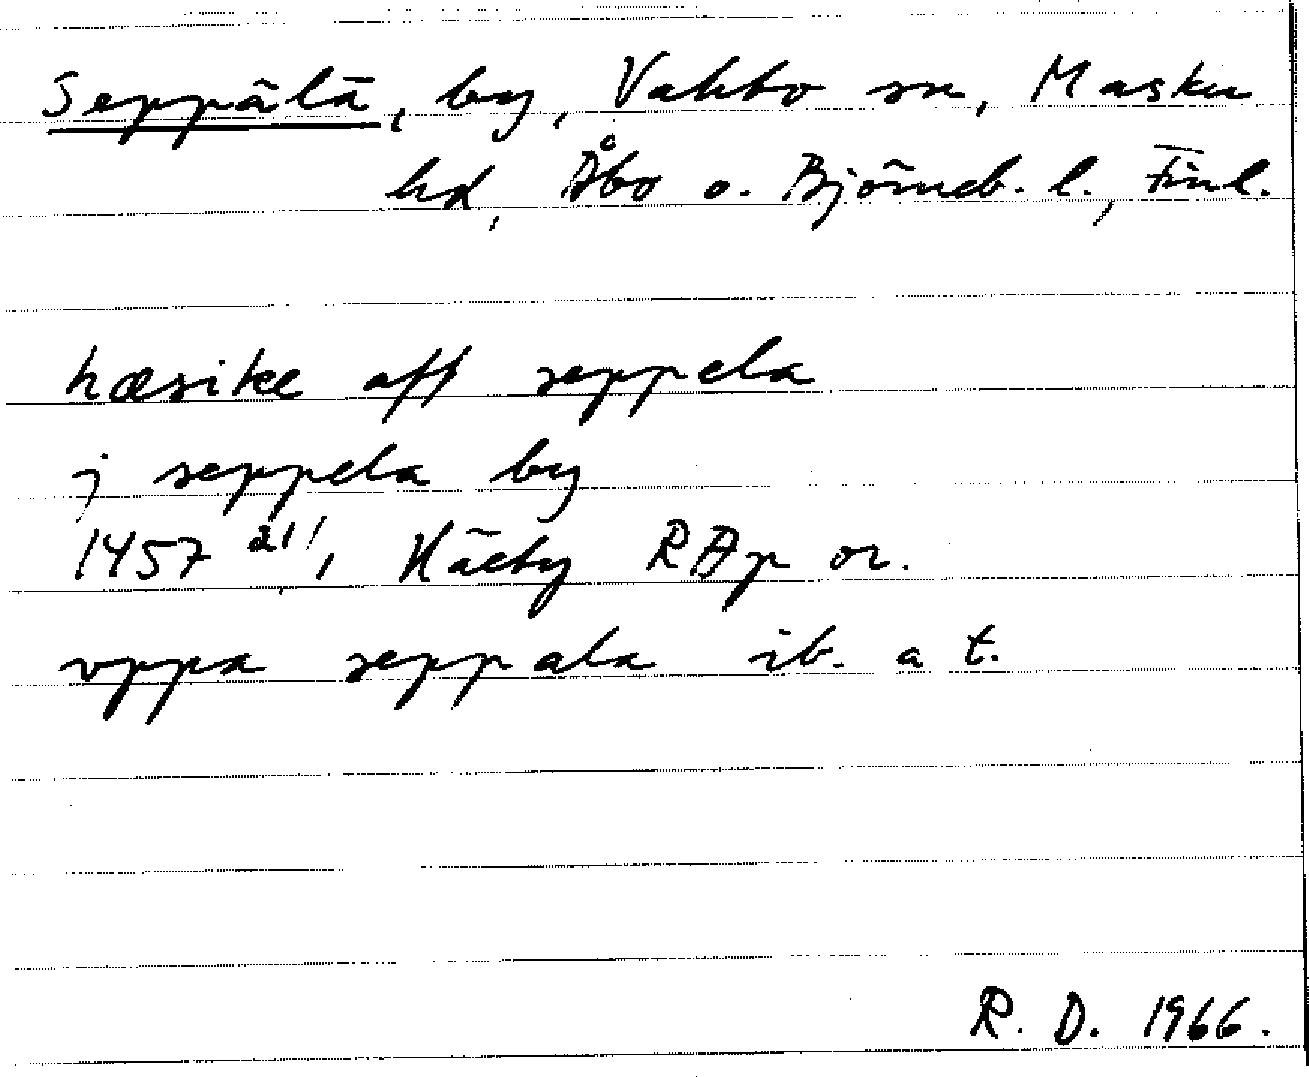 Seppälä, by, Vahto sn, Masku
hd, Åbo o. Björneb. l., Finl.
hæsike aff seppela
j seppela by
1457 21/1, RAp or.
vppa seppala ib. a t.
R. D. 1966.